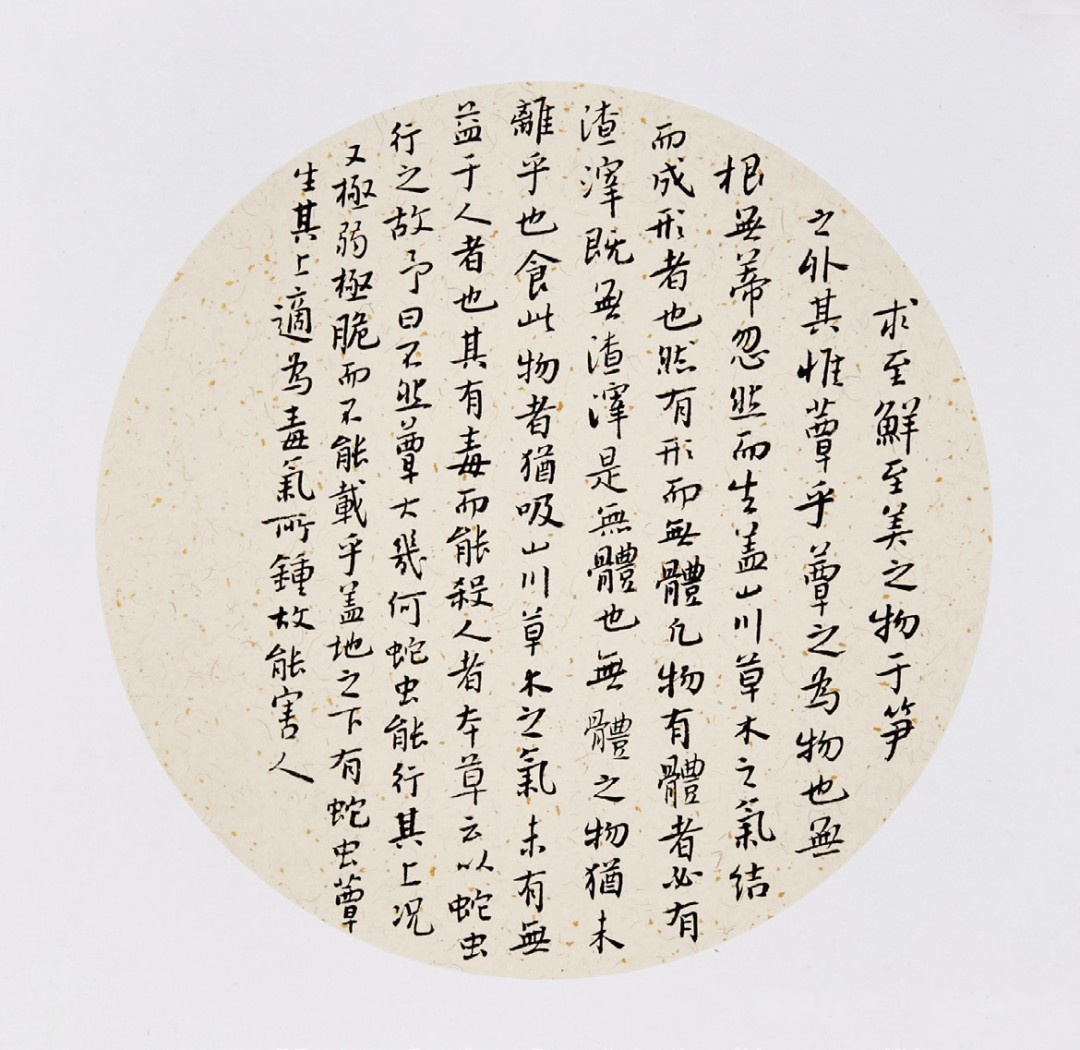 求至鮮至美之物于筍
之外其惟蕈乎蕈之為物也無
根無蒂忽然而生盖山川草木之氣結
而成形者也然有形而無體凡物有體者必有
渣滓既無渣滓是無體也無體之物猶未
離乎也食此物者猶吸山川草木之氣未有無
益于人者也其有毒而能殺人者本草云以蛇虫
行之故予曰不然蕈大幾何蛇虫能行其上况
又極弱極脆而不能載乎盖地之下有蛇虫蕈
生其上適為毒氣所鍾故能害人